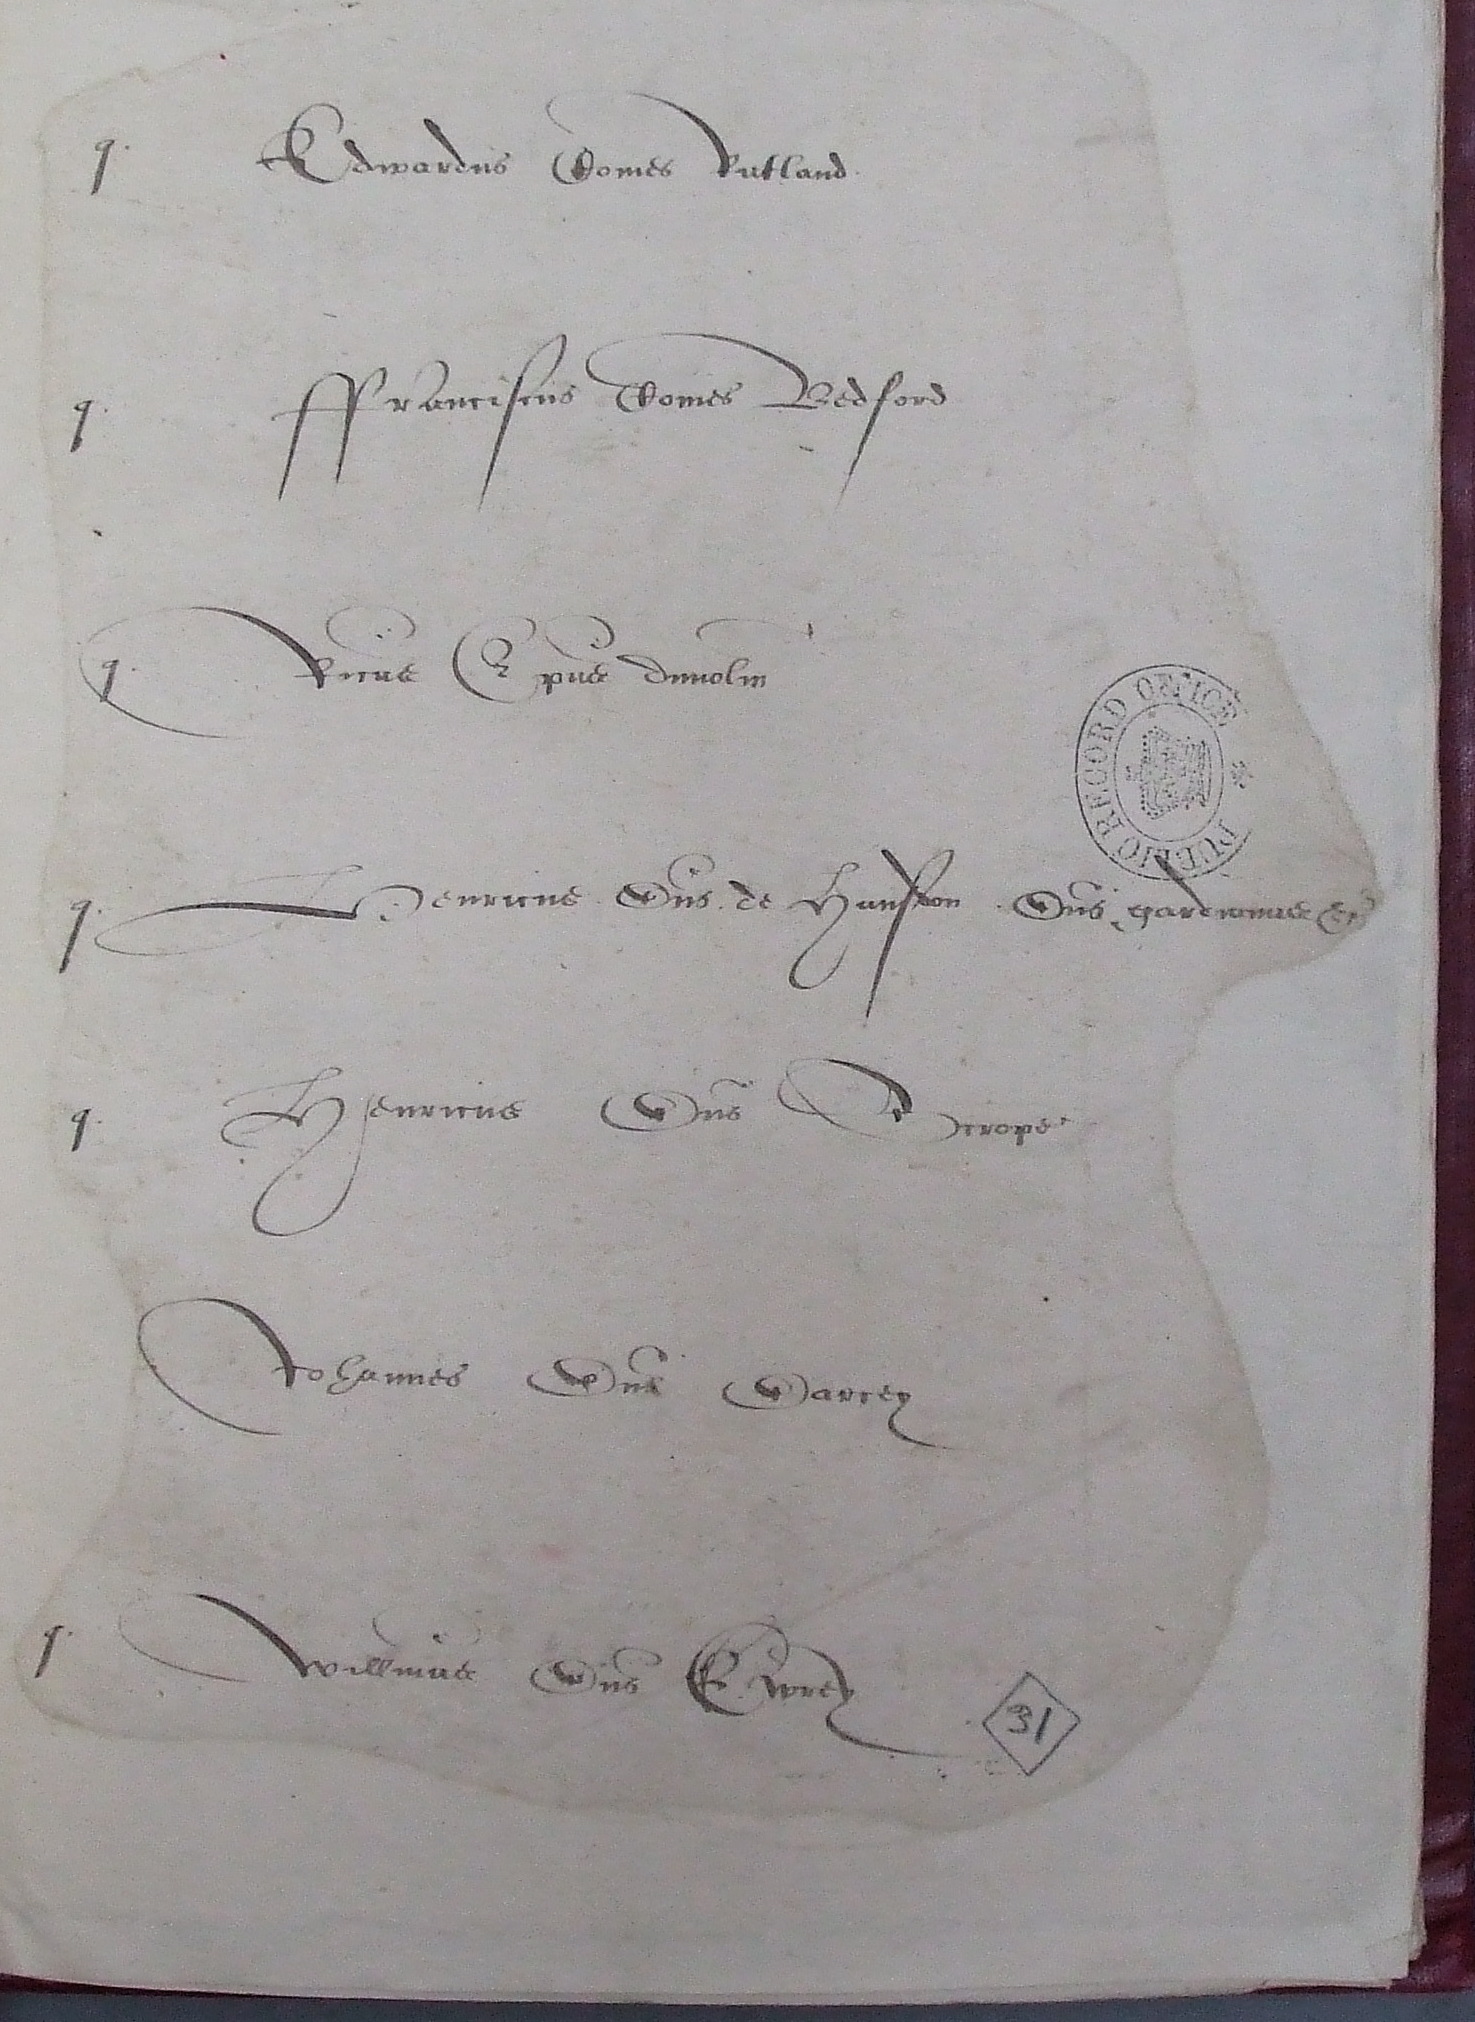 q. Edwardus Comes Rutland.
q. ffranciscus Comes Bedford
q. Ricus Epus dunolm
PUBLIC RECORD OFFICE
q. Henricus Dns de Hunsdon Dns gardianus
q. Henricus Dns Scrope
Johannes Dns Darcey
q. Willmus Dns Ewrey
31